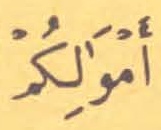 أَمْوَٰلِكُمْ